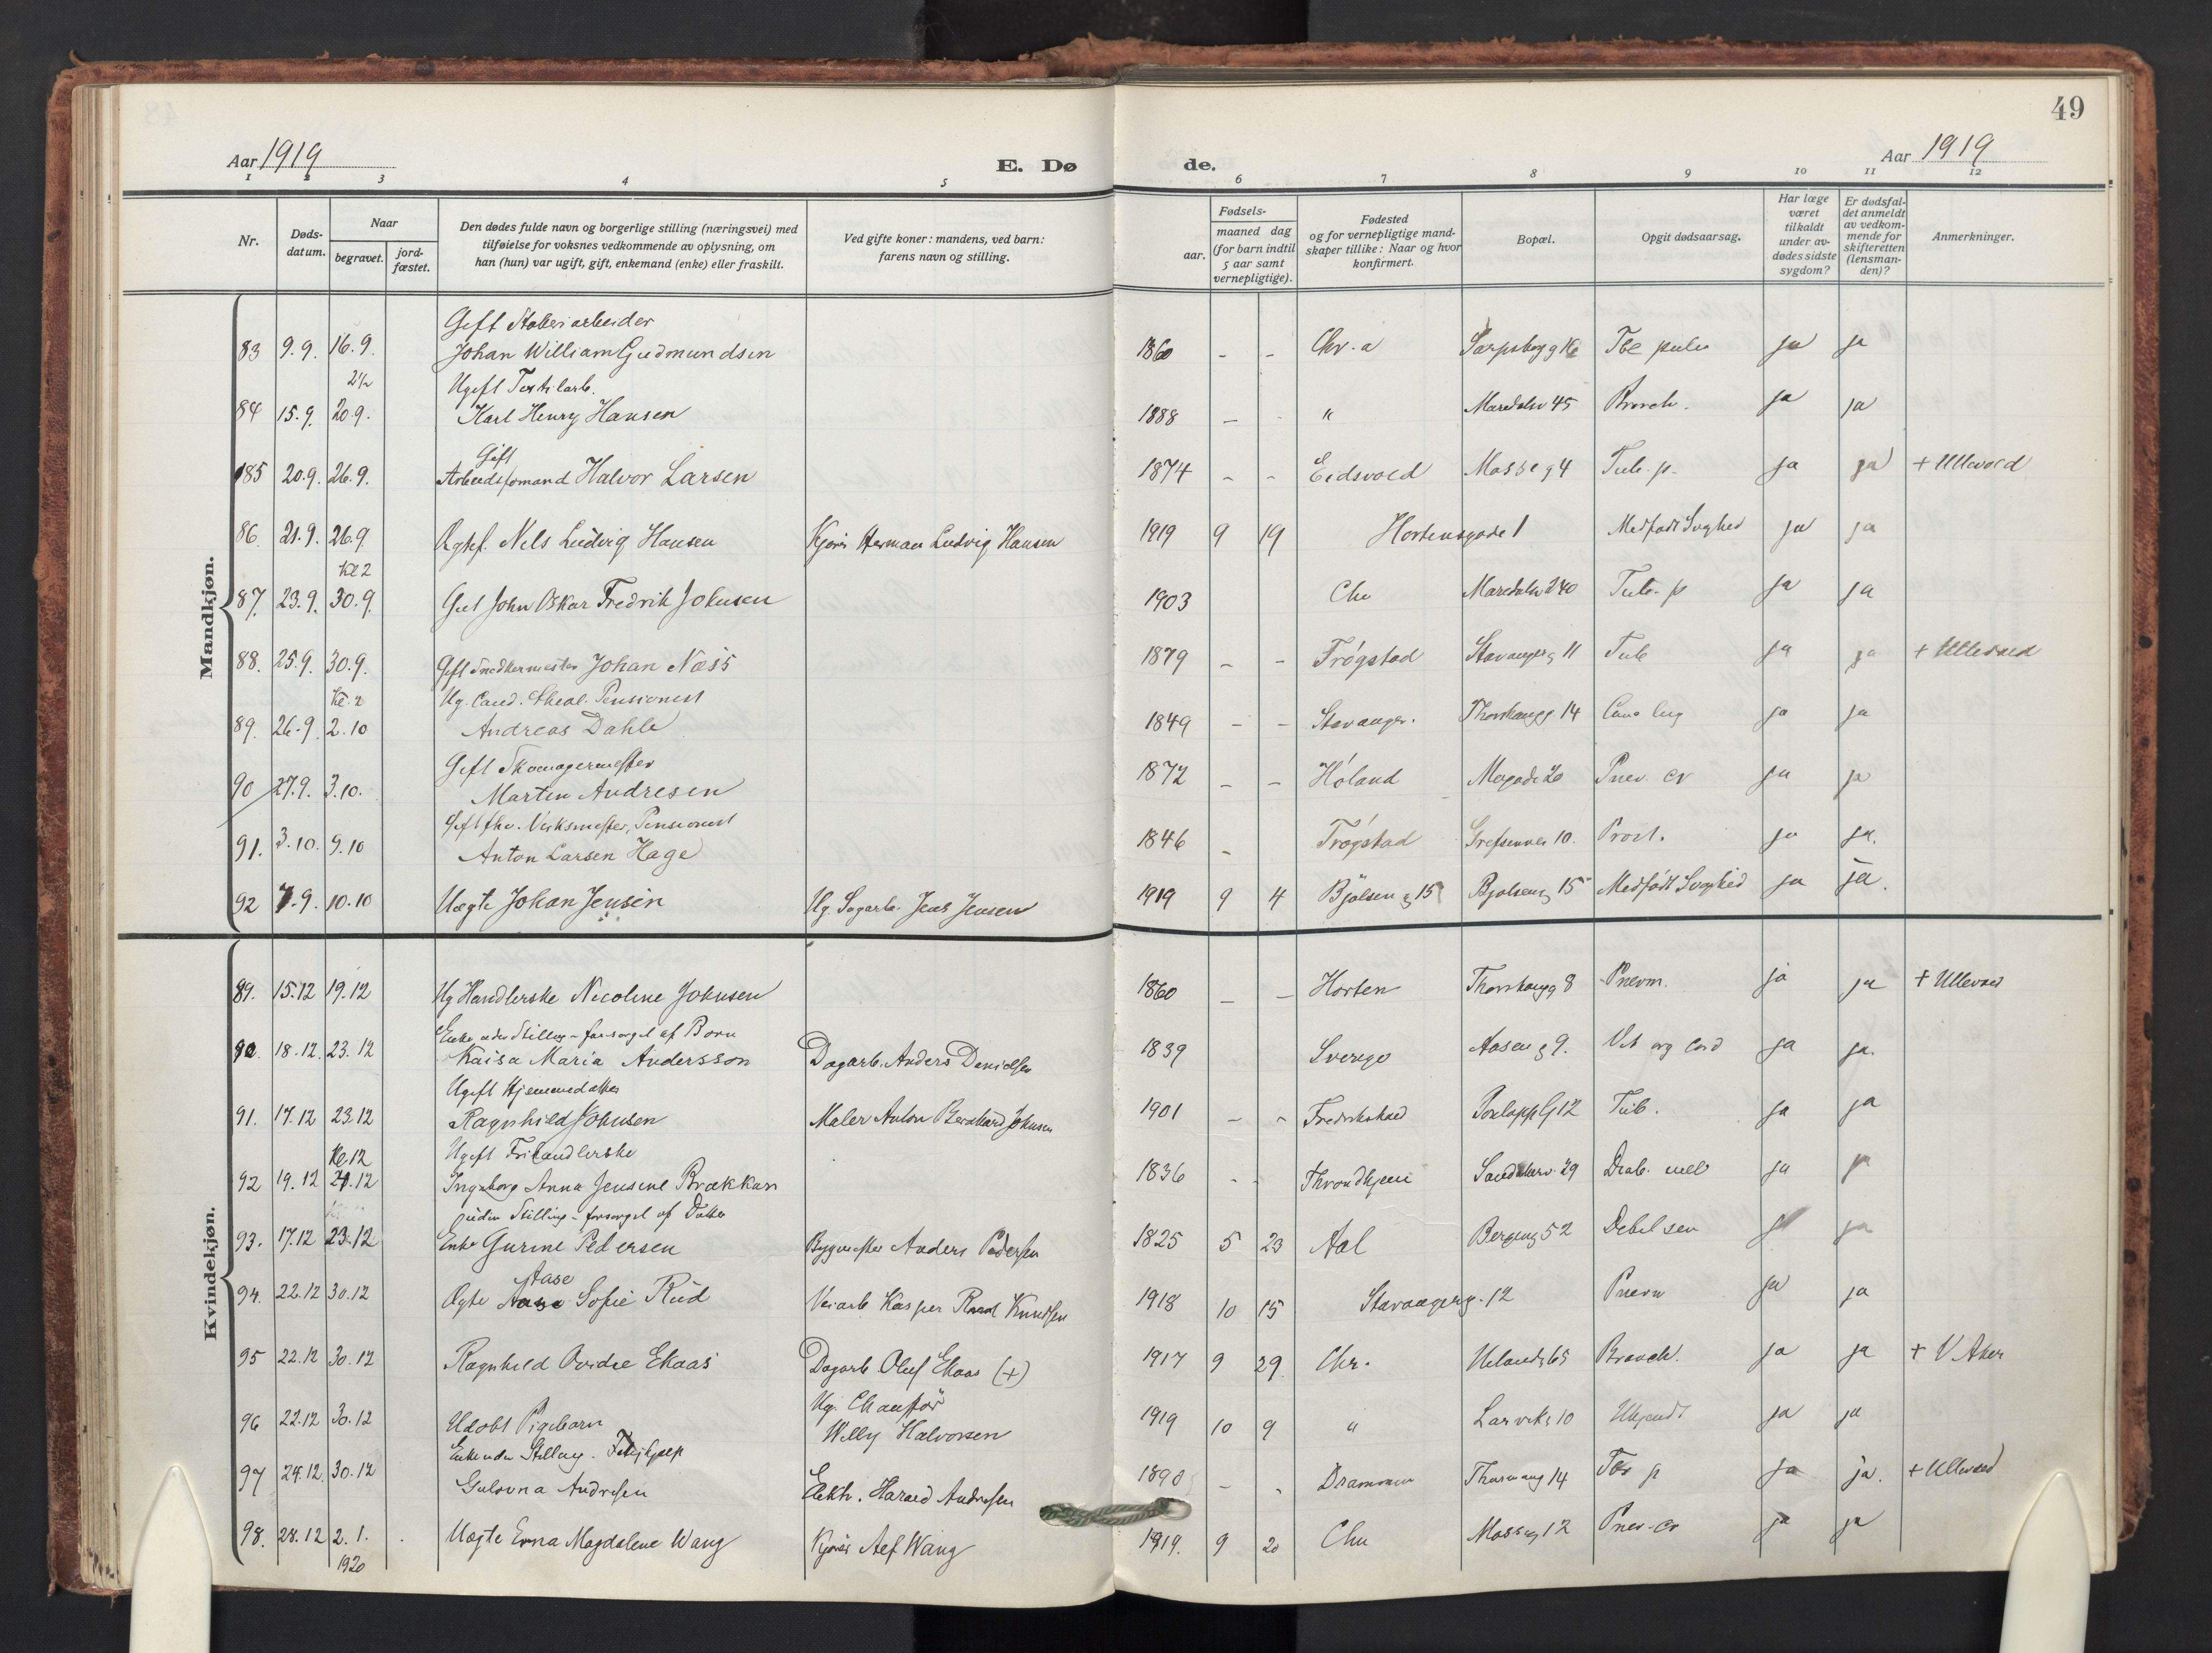 49
Aar 1919
E. Dø de.
Aar 1919
1 2 3 4 5 6 7 8 9 10 11 12
Nr.
Døds-
datum.
Naar
begravet.
jord-
fæstet.
Den dødes fulde navn og borgerlige stilling (næringsvei) med
tilføielse for voksnes vedkommende av oplysning, om
han (hun) var ugift, gift, enkemand (enke) eller fraskilt.
Ved gifte koner: mandens, ved barn:
farens navn og stilling.
Fødsels-
aar.
maaned dag
(for barn indtil
5 aar samt
vernepligtige).
Fødested
og for vernepligtige mand-
skaper tillike: Naar og hvor
konfirmert.
Bopæl.
Opgit dødsaarsag.
Har læge
været
tilkaldt
under av-
dødes sidste
sygdom?
Er dødsfal-
det anmeldt
av vedkom-
mende for
skifteretten
(lensman-
den)?
Anmerkninger.
Mandkjøn.
Gift Støberiarbeider
83 9.9. 16.9. Johan William Gudmundsen 1860 - - Chr.a Sarpsborgg 16 Tbc pulm ja ja
2½ Ugift Textilarb.
84 15.9. 20.9. Karl Henry Hansen 1888 - - " Maridalsv 45 Bronch. ja ja
Gift
185 20.9. 26.9. Arbeidsformand Halvor Larsen 1874 - - Eidsvold Mosseg 4 Tub. p. ja ja + Ullevold
86. 21.9. 26.9 Ægtef. Nils Ludvig Hansen Kjører Herman Ludvig Hansen 1919 9 19 Hortensgade 1 Medfødt Svaghed ja ja
Kl 2
87. 23.9. 30.9. Gut John Oskar Fredrik Johnsen 1903 Chr Maridalsv 240 Tub. p ja ja
88. 25.9. 30.9. Gift Snedkermester Johan Næss 1879 - - Trøgstad Stavangerg 11 Tub ja ja + Ullevold
Kl. 2 Ug. Cand. theol. Pensionist
89. 26.9. 2.10 Andreas Dahle 1849 - - Stavanger. Thorshaugg. 14 ja ja
Gift Skomagermester
90 27.9. 3.10. Martin Andresen 1872 - - Høland Mogade 20 Pnev. cr ja ja
Gift fhv. Verksmester, Pensionist
91. 3.10. 9.10 Anton Larsen Hage 1846 - Trøgstad Grefsenvei 10. Prost. ja ja.
92 7.9. 10.10 Uægte Johan Jensen Ug. Sagarb. Jens Jensen 1919 9 4 Bjølseng 15 Bjølseng 15 Medfødt Svaghed ja ja.
Kvindekjøn.
89. 15.12 19.12 Ug Handlerske Nicoline Johnsen 1860 - - Horten Thorshaugg 8 Pnevm. ja ja + Ullevold
Enke uden Stilling - forsørget af Børn
90. 18.12. 23.12 Kaisa Maria Andersson Dagarb. Anders Danielsen 1839 Sverige Aaseng 9. Vit org cord ja ja.
Ugift Hjemmedatter
91. 17.12 23.12 Ragnhild Johnsen Maler Anton Bernhard Johnsen 1901 - - Fredrikshald 12 Tub. ja ja
Kl. 12 Ugift Frihandlerske
92 19.12 29.12 Ingeborg Anna Jensine Brækkan 1836 - - Throndhjem 29 Diab. mell ja ja
uden Stilling - forsørget af Datter
93. 17.12 23.12 Enke Gurine Pedersen Bygmester Anders Pedersen 1825 5 23 Aal Bergeng 52 Debil sen ja ja
Aase
94. 22.12 30.12 Ægte Sofie Rud Veiarb Kasper Knudsen 1918 10 15 Stavangerg. 12 Pnevm ja ja
95 22.12 30.12 Ragnhild Ovidie Ekaas Dagarb Oluf Ekaas (+) 1917 9 29 Chr. Uelandsg 65 Bronch. ja ja + V Aker
Ug. Chauffør
96 22.12 30.12 Udøbt Pigebarn Willy Halvorsen 1919 10 9 " Larviks 10 Ukjendt ja ja
Enke uden Stilling.
97 24.12. 30.12 Gulovna Andresen Elektr. Harald Andresen 1890 - - Drammen 14 Tbc p ja ja. + Ullevold
98. 28.12 2.1. Uægte Erna Magdalene Wang Kjører Alf Wang 1919. 9 20 Chr Mosseg 12 Pnev.-cr ja ja
1920